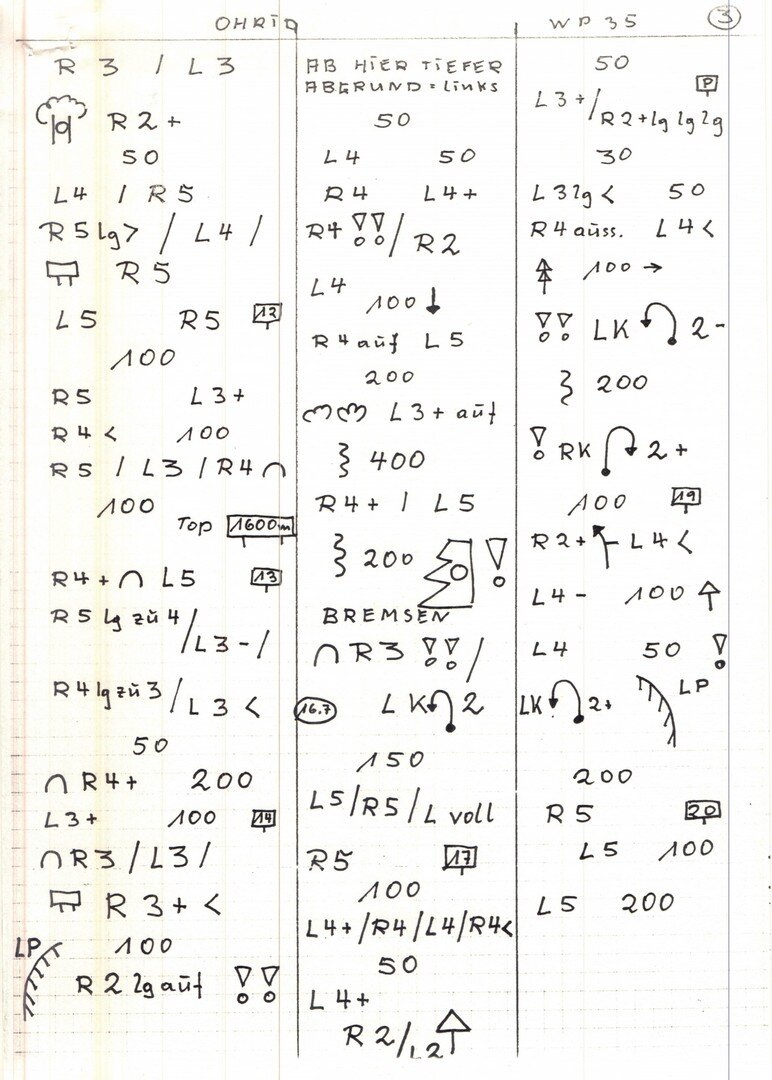 OHRID
WP 35
3
R 3 / L 3
R 2 +
50
L 4 / R 5
R 5 lg > / L 4 /
R 5
L 5 R 5 12
100
R 5 L 3 +
R 4 < 100
R 5 / L 3 / R 4 ∩
100
Top 1600m
R 4 + ∩ L 5 13
R 5 lg zu 4 / L 3 - /
R 4 lg zu 3 / L 3 <
50
∩ R 4 + 200
L 3 + 100 14
∩ R 3 / L 3 /
R 3 + <
LP 100
R 2 lg auf !!
AB HIER TIEFER
ABGRUND = LINKS
50
L 4 50
R 4 L 4 +
R 4 !! / R 2
L 4
100 ↓
R 4 auf L 5
200
L 3 + auf
400
R 4 + / L 5
200 !
BREMSEN
∩ R 3 !! /
16.7 L K 2
150
L 5 / R 5 / L voll
R 5 17
100
L 4 + / R 4 / L 4 / R 4 <
50
L 4 +
R 2 / L 2
50
P
L 3 + / R 2 + lg lg lg
30
L 3 lg < 50
R 4 auss. L 4 <
100 →
!! LK 2 -
200
! RK 2 +
100 19
R 2 + L 4 <
L 4 - 100
L 4 50 !
LK 2 + LP
200
R 5 20
L 5 100
L 5 200